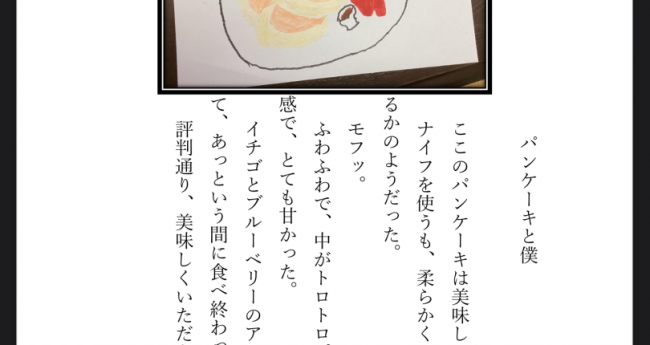 パンケーキと僕
ここのパンケーキは美味し
ナイフを使うも、柔らかく
るかのようだった。
モフッ。
ふわふわで、中がトロトロ
感で、とても甘かった。
イチゴとブルーベリーのア
て、あっという間に食べ終わ
評判通り、美味しくいただ